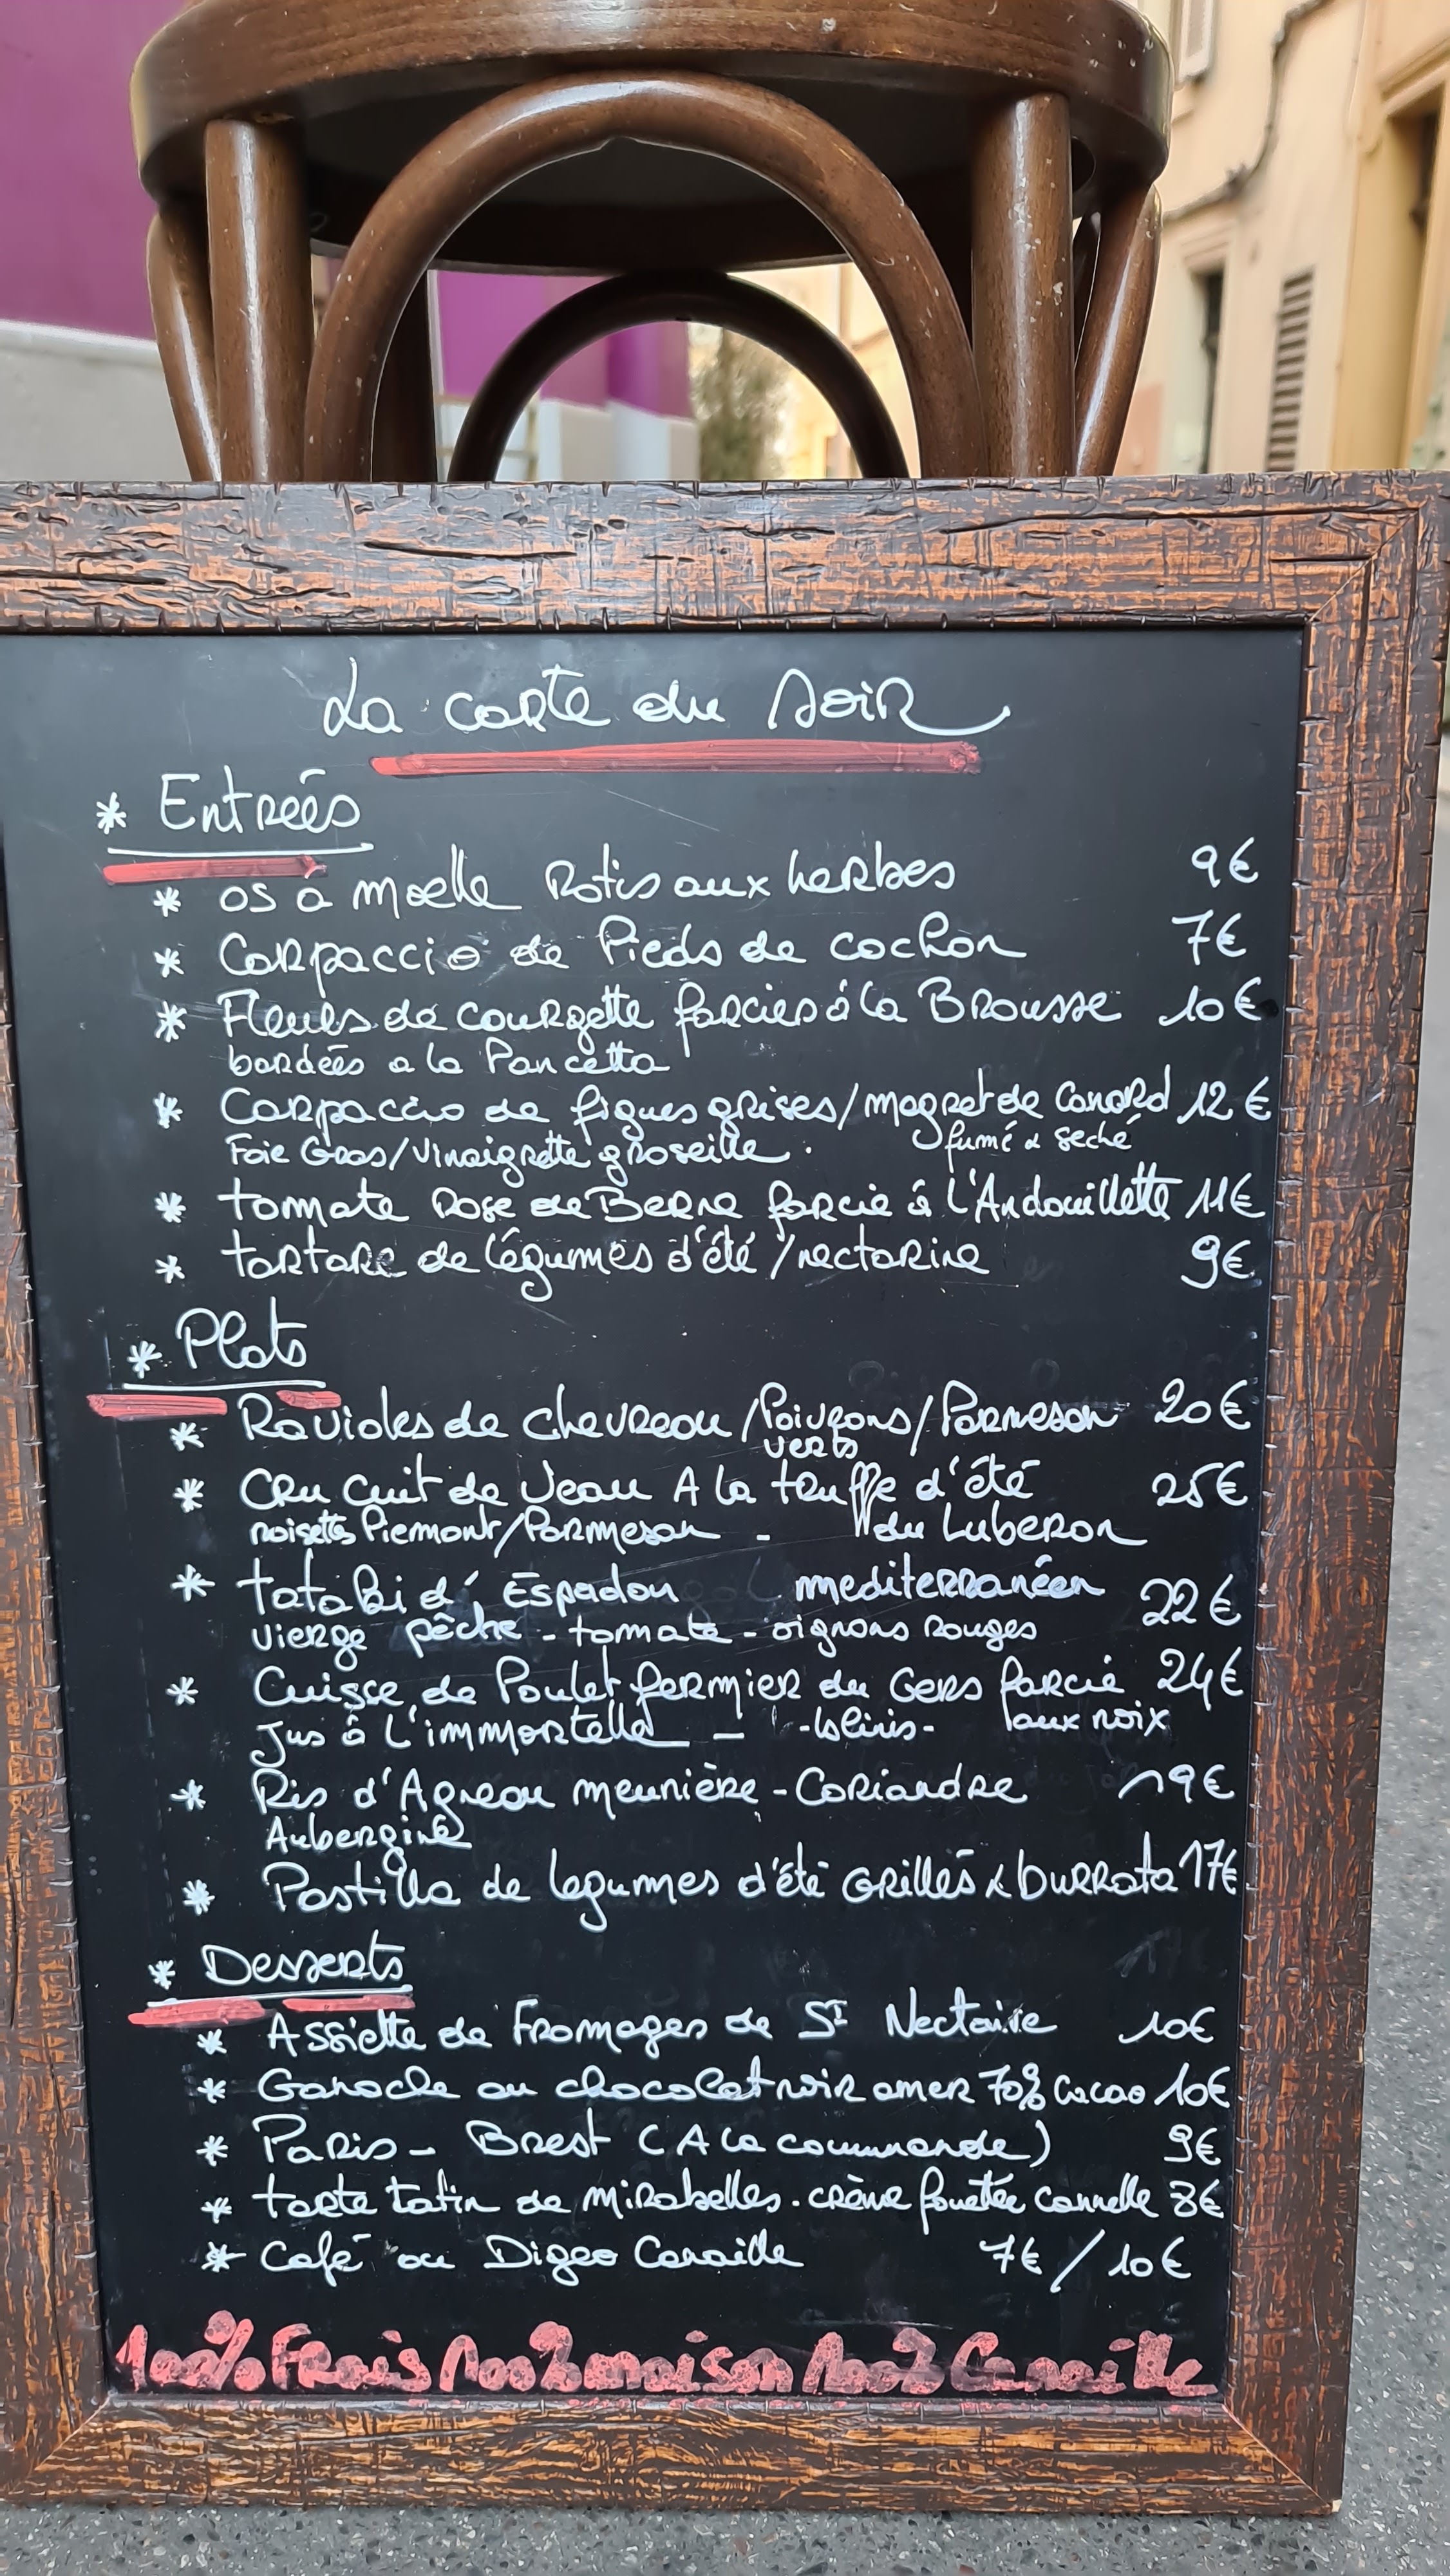 La carte du soir
* Entrées
* os a moelle Rotis aux herbes 9€
* Carpaccio de Pieds de cochon 7€
* Fleurs de courgette farcies á la Brousse 10€
bardées a la Pancetta
* Carpaccio de figues grises/magret de Canard 12€
Foie Gras/Vinaigrette groseille. fumé & seché
* tomate Rose de Berne farcie á L'Andouillette 11€
* tartare de légumes d'été /nectarine 9€
* Plats
* Ravioles de chevreau/Poivrons/Parmesan 20€
verts
* Cru Cuit de Veau A la truffe d'été 25€
noisettes Piemont/Parmesan - du Luberon
* tataki d' Espadon mediterranéen 22€
vierge pêche - tomate - oignons rouges
* Cuisse de Poulet fermier du Gers farcie 24€
Jus à L'immortelle - -blinis- aux noix
* Ris d'Agneau meunière - Coriandre 19€
Aubergine
* Pastilla de legumes d'été Grillés & burrata 17€
* Desserts
* Assiette de Fromages de St Nectaire 10€
* Ganache au chocolat noir amer 70% Cacao 10€
* Paris - Brest (A la commande) 9€
* tarte tatin de mirabelles. crème fouettée cannelle 8€
* Café ou Digeo Canaille 7€ / 10€
100% Frais 100% maison 100% Canaille